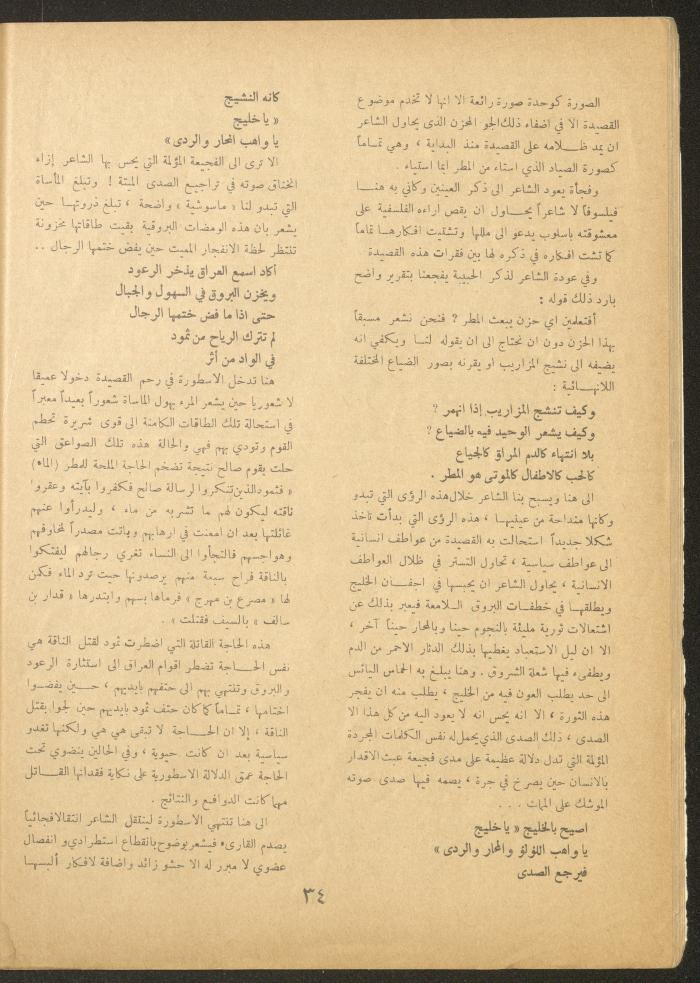 الصورة كوحدة صورة رائعة الا انها لا تخدم موضوع
القصيدة الا في اضفاء ذلك الجو المحزن الذي يحاول الشاعر
ان يمد ظلامه على القصيدة منذ البداية ، وهي تماماً
كصورة الصياد الذي استاء من المطر ايما استياء .
وفجأة يعود الشاعر الى ذكر العينين وكاني به هنا
فيلسوفاً لا شاعراً يحاول ان يقص اراءه الفلسفية على
معشوقته باسلوب يدعو الى مللها وتشتيت افكارها تماماً
كما تشتت افكاره في ذكره لها بين فقرات هذه القصيدة
وفي عودة الشاعر لذكر الحبيبة يفجعنا بتقرير واضح
بارد ذلك قوله :
أتعلمين اي حزن يبعث المطر ? فنحن نشعر مسبقاً
بهذا الحزن دون ان نحتاج الى ان يقوله لنا ويكفي انه
يضيفه الى نشيج المزاريب او يقرنه بصور الضياع المختلفة
اللانهائية :
وكيف تنشج المزاريب إذا انهمر ?
وكيف يشعر الوحيد فيه بالضياع ?
بلا انتهاء كالدم المراق كالجياع
كالحب كالاطفال كالموتى هو المطر .
الى هنا ويسبح بنا الشاعر خلال هذه الرؤى التي تبدو
وكانها منداحة من عينيها ، هذه الرؤى التي بدأت تأخذ
شكلا جديداً استحالت به القصيدة من عواطف انسانية
الى عواطف سياسية ، تحاول التستر في ظلال العواطف
الانسانية ، يحاول الشاعر ان يحبسها في اجفان الخليج
ويطلقها في خطفات البروق اللامعة فيعبر بذلك عن
اشتعالات ثورية مليئة بالنجوم حينا وبالمحار حيناً آخر ،
الا ان ليل الاستعباد يغطيها بذلك الدثار الاحمر من الدم
ويطفىء فيها شعلة الشروق . وهنا يبلغ به الحماس اليائس
الى حد يطلب العون فيه من الخليج ، يطلب منه ان يفجر
هذه الثورة ، الا انه يحس انه لا يعود اليه من كل هذا الا
الصدى ، ذلك الصدى الذي يحمل له نفس الكلمات المجردة
المؤلمة التي تدل دلالة عظيمة على مدى فجيعة عبث الاقدار
بالانسان حين يصرخ في جرة ، يصمه فيها صدى صوته
الموشك على الممات . . .
اصيح بالخليج « يا خليج
يا واهب اللؤلؤ والمحار والردى »
فيرجع الصدى
كانه النشيج
« يا خليج
يا واهب المحار والردى»
الا ترى الى الفجيعة المؤلمة التي يحس بها الشاعر إزاء
اختناق صوته في تراجيع الصدى الميتة ! وتبلغ المأساة
التي تبدو لنا « ماسوشية » واضحة ، تبلغ ذروتها حين
يشعر بان هذه الومضات البروقية بقيت طاقاتها مخزونة
تنتظر لحظة الانفجار المميت حين يفض ختمها الرجال ..
أكاد اسمع العراق يذخر الرعود
ويخزن البروق في السهول والجبال
حتى اذا ما فض ختمها الرجال
لم تترك الرياح من ثمود
في الواد من أثر
هنا تدخل الاسطورة في رحم القصيدة دخولا عميقا
لا شعوريا حين يشعر المرء بهول الماساة شعوراً بعيداً معبراً
في استحالة تلك الطاقات الكامنة الى قوى شريرة تحطم
القوم وتودي بهم فهي والحالة هذه تلك الصواعق التي
حلت بقوم صالح نتيجة تضخم الحاجة الملحة للمطر (الماء)
« فثمود الذين تنكروا لرسالة صالح فكفروا بآيته وعقروا
ناقته ليكون لهم ما تشربه من ماء ، وليدرأوا عنهم
غائلتها بعد ان امعنت في ارهابهم وباتت مصدراً لمخاوفهم
وهواجسهم فالتجأوا الى النساء تغري رجالهم ليفتكوا
بالناقة فراح سبعة منهم يرصدونها حيث ترد الماء فكمن
لها « مصرع بن مهرج » فرماها بسهم وابتدرها « قدار بن
سالف » بالسيف فقتلت » .
هذه الحاجة القاتلة التي اضطرت ثمود لقتل الناقة هي
نفس الحاجة تضطر اقوام العراق الى استثارة الرعود
والبروق وتنتهي بهم الى حتفهم بايديهم ، حين يفضوا
اختامها ، تماماً كما كان حتف ثمود بايديهم حين لجوا بقتل
الناقة ، إلا ان الحاجة لا تبقى هي هي ولكنها تغدو
سياسية بعد ان كانت حيوية ، وفي الحالين ينضوي تحت
الحاجة عمق الدلالة الاسطورية على نكاية فقدانها القاتل
مهما كانت الدوافع والنتائج .
الى هنا تنتهي الاسطورة لينتقل الشاعر انتقالا فجائياً
يصدم القارىء فيشعر بوضوح بانقطاع استطرادي و انفصال
عضوي لا مبرر له الا حشو زائد واضافة لافكار ألبسها
٣٤